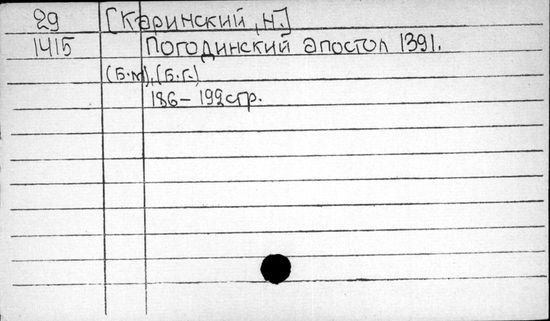 29 [Каринский, Н.]
1415 Погодинский апостол 1391.
(Б.м), (Б.г.)
186-192стр.